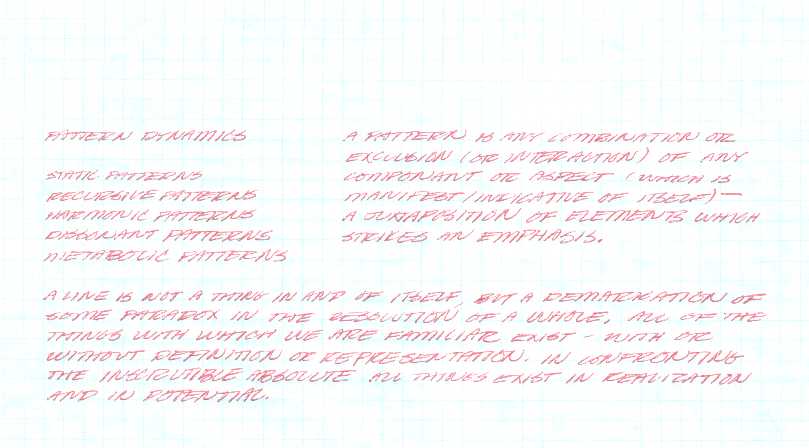 PATTERN DYNAMICS
STATIC PATTERNS
RECURSIVE PATTERNS
HARMONIC PATTERNS
DISSONANT PATTERNS
METABOLIC PATTERNS
A PATTERN IS ANY COMBINATION OR
EXCLUSION (OR INTERACTION) OF ANY
COMPONANT OR ASPECT (WHICH IS
MANIFEST/INDICATIVE OF ITSELF)—
A JUXTAPOSITION OF ELEMENTS WHICH
STRIKES AN EMPHASIS.
A LINE IS NOT A THING IN AND OF ITSELF, BUT A DEMARKATION OF
SOME PARADOX IN THE RESOLUTION OF A WHOLE, ALL OF THE
THINGS WITH WHICH WE ARE FAMILIAR EXIST - WITH OR
WITHOUT DEFINITION OR REPRESENTATION. IN CONFRONTING
THE INSCRUTIBLE ABSOLUTE ALL THINGS EXIST IN REALIZATION
AND IN POTENTIAL.